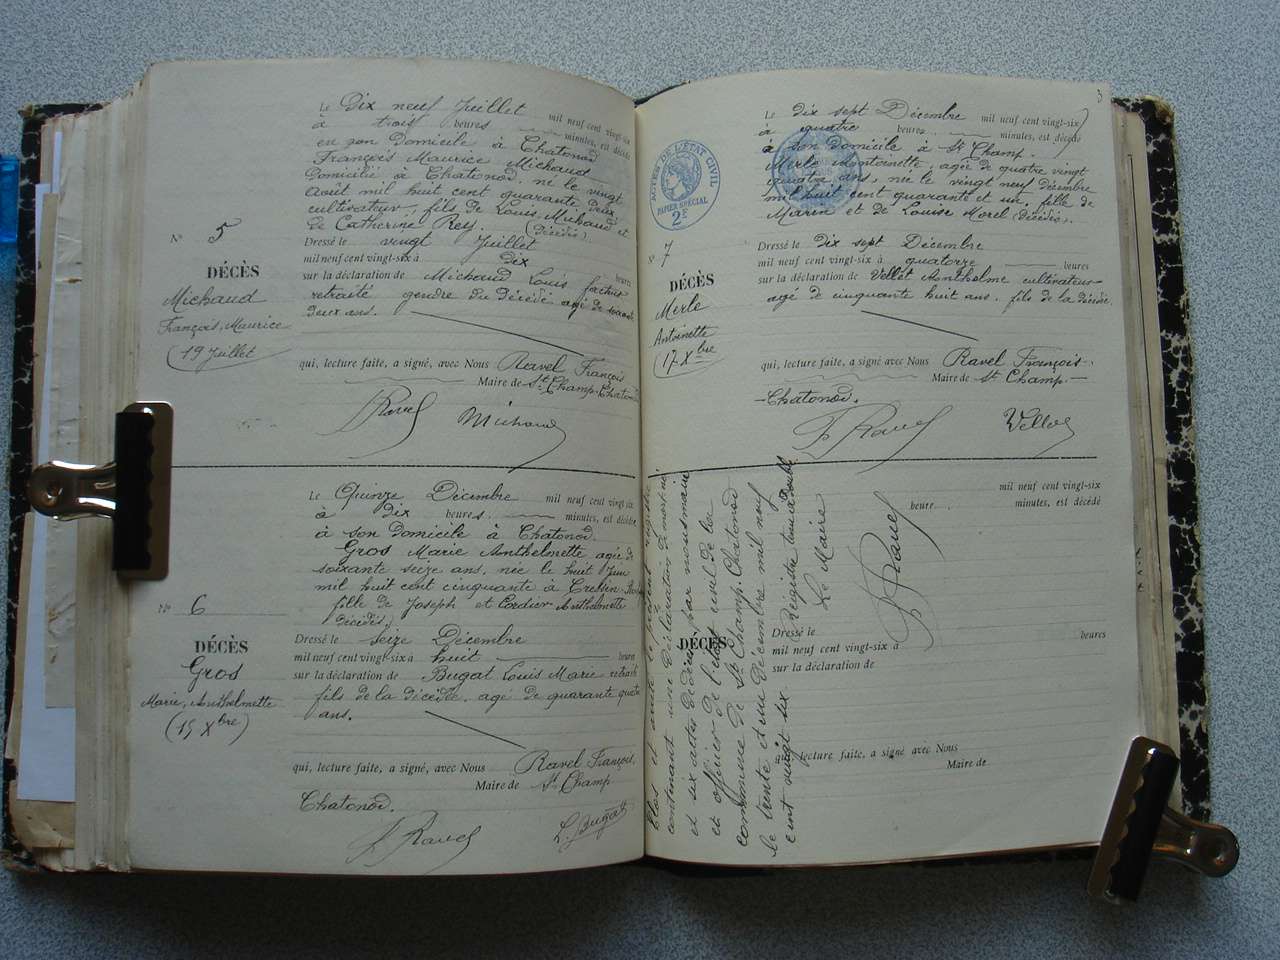 Le Dix neuf Juillet mil neuf cent vingt-six
à trois heures minutes, est décédé
en son Domicile à Chatonod
François Maurice Michaud
Domicilié à Chatonod, né le vingt
Août mil huit cent quarante deux
cultivateur, fils de Louis Michaud et
de Catherine Rey (décédés)
N° 5
DÉCÈS
Michaud
François, Maurice
(19 Juillet)
Dressé le vingt Juillet
mil neuf cent vingt-six à dix heures
sur la déclaration de Michaud Louis facteur
retraité gendre du décédé agé de soixante
deux ans.
qui, lecture faite, a signé, avec Nous Ravel François
Maire de St Champ-Chatonod
F Ravel Michaud
Le Quinze Décembre mil neuf cent vingt-six
à dix heures minutes, est décédée
à son Domicile à Chatonod
Gros Marie Anthelmette agée de
soixante seize ans, née le huit Juin
mil huit cent cinquante à
fille de Joseph et Cordier Anthelmette
décédés)
N° 6
DÉCÈS
Gros
Marie, Anthelmette
(15 Xbre)
Dressé le seize Décembre
mil neuf cent vingt-six à huit heures
sur la déclaration de Bugat Louis Marie retraité
fils de la décédée, agé de quarante quatre
ans.
qui, lecture faite, a signé, avec Nous Ravel François,
Maire de St Champ
Chatonod.
F Ravel L. Bugat
3
Le dix sept Décembre mil neuf cent vingt-six
à quatre heures minutes, est décédé
à son domicile à St Champ.
Merle Antoinette, agée de quatre vingt
quatre ans, née le vingt neuf décembre
mil huit cent quarante et un, fille de
Marin et de Louise Morel (décédés).
ACTES DE L'ÉTAT CIVIL
PAPIER SPÉCIAL
2F
7
DÉCÈS
Merle
Antoinette
(17 Xbre)
Dressé le dix sept Décembre
mil neuf cent vingt-six à quatorze heures
sur la déclaration de Vellet Anthelme cultivateur
agé de cinquante huit ans, fils de la décédée
qui, lecture faite, a signé, avec Nous Ravel François
Maire de St Champ-
-Chatonod.
F Ravel Vellet
mil neuf cent vingt-six
heure minutes, est décédé
DÉCÈS
Dressé le heures
mil neuf cent vingt-six à
sur la déclaration de
qui, lecture faite, a signé, avec Nous
Maire de
Clos et arrêté le présent registre
contenant une déclaration de mort né
et six actes de décès par nous maire
et officier de l'état civil de la
commune de St Champ-Chatonod
le trente et un Décembre mil neuf
cent vingt six. Registre tenu double
Le Maire
F Ravel